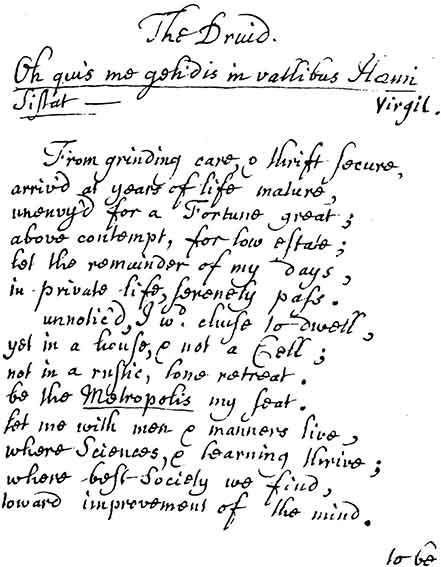 The Druid.
Oh quis me gelidis in vallibus Hæmi
Sistat — Virgil.
From grinding care, & thrift secure,
arriv'd at years of life mature,
unenvy'd for a Fortune great;
above contempt, for low estate;
let the remainder of my days,
in private life, serenely pass.
unnotic'd, I wd. chuse to dwell,
yet in a house, & not a Cell;
not in a rustic, lone retreat.
be the Metropolis my seat.
let me with men & manners live,
where Sciences, & learning thrive;
where best Society we find,
toward improvement of the mind.
to be